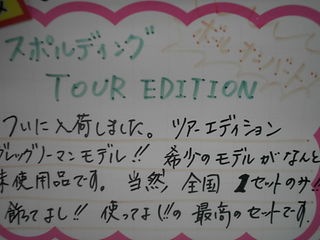 スポルディング
TOUR EDITION
ついに入荷しました。 ツアーエディション
グレッグノーマンモデル!! 希少のモデルがなんと
未使用品です。 当然、全国1セットのサ!!
飾ってよし!! 使ってよし!!の 最高のセットです.